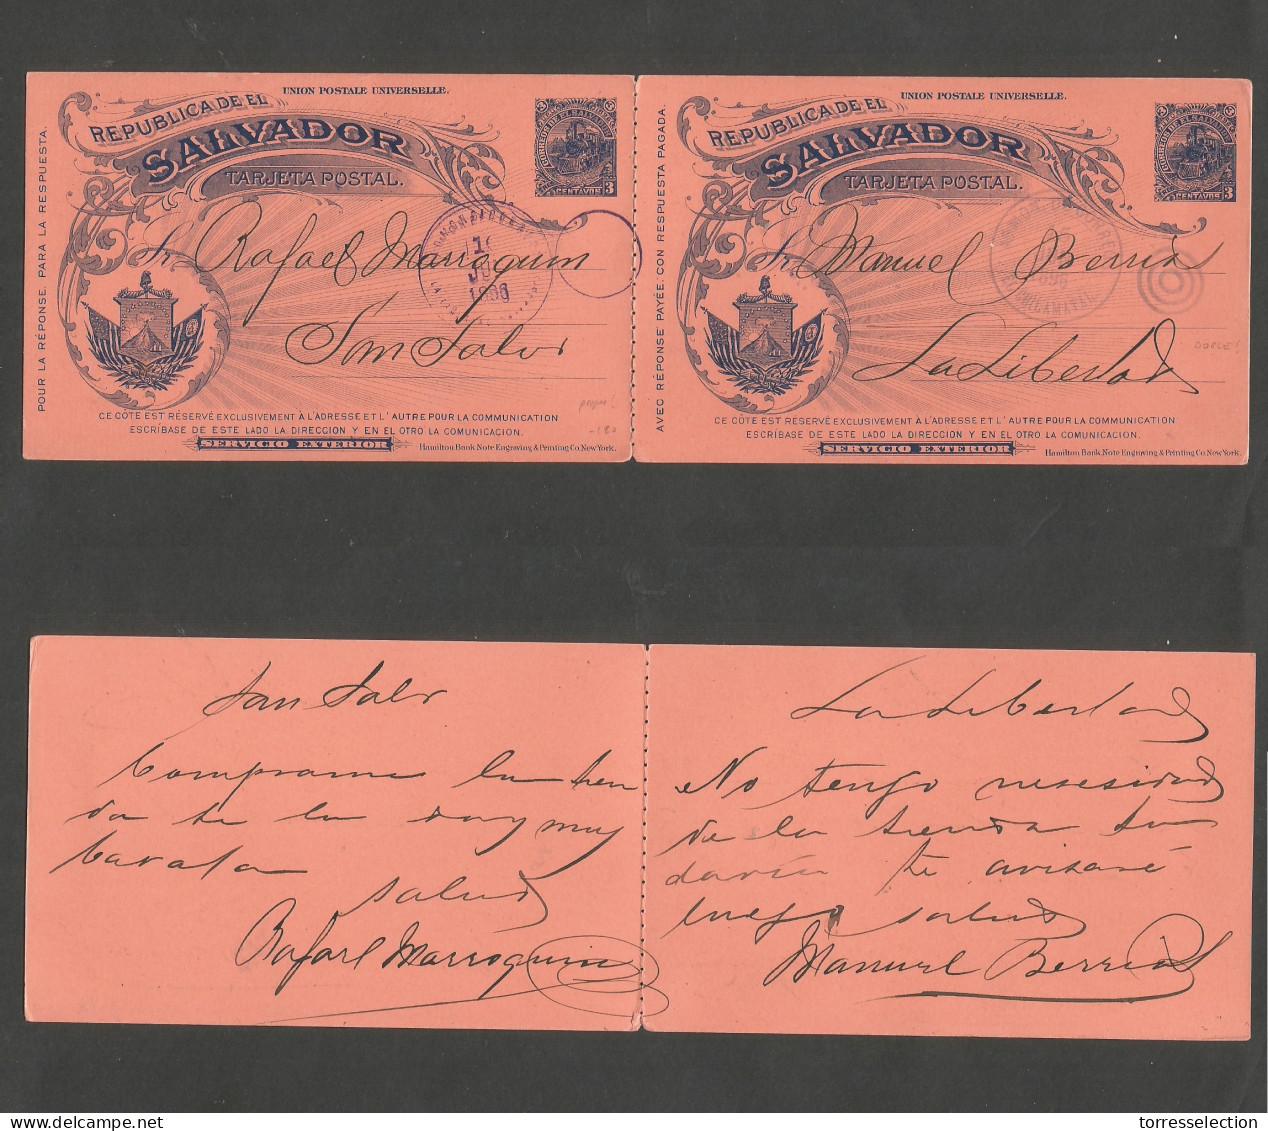 UNION POSTALE UNIVERSELLE.
REPUBLICA DE EL
SALVADOR
TARJETA POSTAL.
CORREOS DE EL SALVADOR
3 3
3 CENTAVOS 3
Sr. Rafael Marroquin
San Salvr
1886
POUR LA RÉPONSE. PARA LA RESPUESTA.
CE CÔTE EST RÉSERVÉ EXCLUSIVEMENT À L'ADRESSE ET L' AUTRE POUR LA COMMUNICATION
ESCRÍBASE DE ESTE LADO LA DIRECCION Y EN EL OTRO LA COMUNICACION.
SERVICIO EXTERIOR
Hamilton Bank Note Engraving & Printing Co. New York.
UNION POSTALE UNIVERSELLE.
REPUBLICA DE EL
SALVADOR
TARJETA POSTAL.
CORREOS DE EL SALVADOR
3 3
3 CENTAVOS 3
Sr. Manuel Berrios
La Libertad
DOBLE!
AVEC RÉPONSE PAYÉE. CON RESPUESTA PAGADA.
CE CÔTE EST RÉSERVÉ EXCLUSIVEMENT À L'ADRESSE ET L' AUTRE POUR LA COMMUNICATION
ESCRÍBASE DE ESTE LADO LA DIRECCION Y EN EL OTRO LA COMUNICACION.
SERVICIO EXTERIOR
Hamilton Bank Note Engraving & Printing Co. New York.
San Salvr
Comprame la tien
da te la doy muy
barata
salud
Rafael Marroquin
La Libertad
No tengo nesesidad
de la tienda to
davia te avisaré
luego salud
Manuel Berrios
torresselection